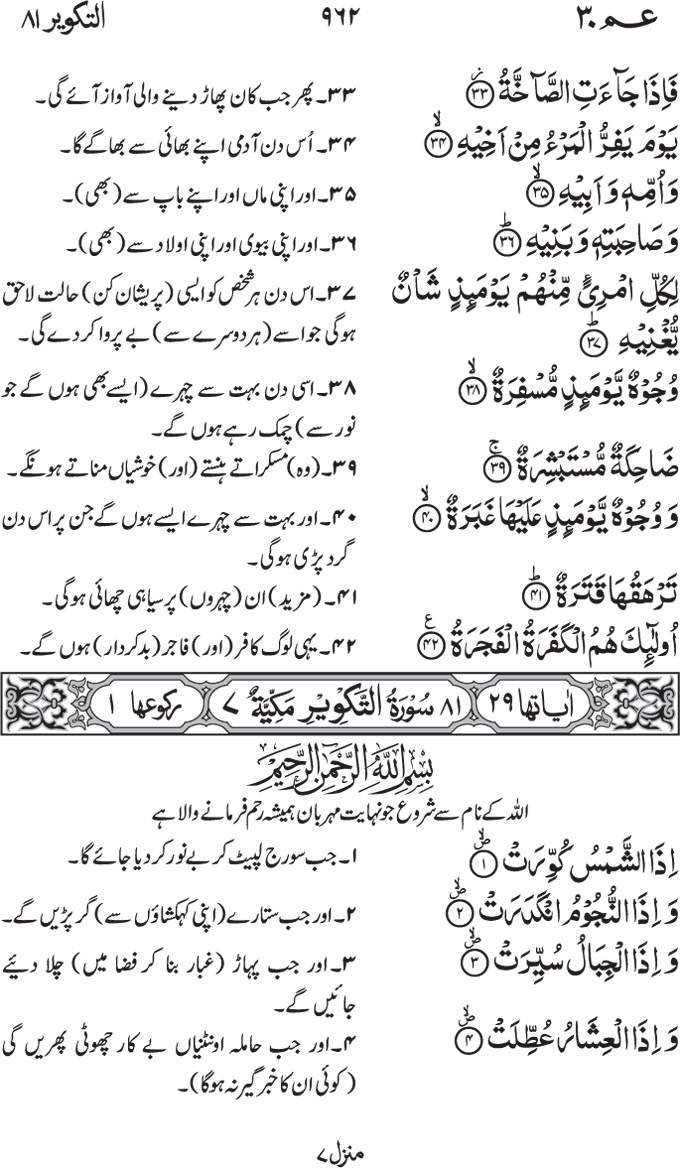 عـم ٣٠ ٩٦٢ التكوير ٨١
فَاِذَا جَآءَتِ الصَّآخَّةُ ﴿۳۳﴾ ۳۳۔ پھر جب کان پھاڑ دینے والی آواز آئے گی۔
یَوْمَ یَفِرُّ الْمَرْءُ مِنْ اَخِیْهِ ﴿۳۴﴾ ۳۴۔ اُس دن آدمی اپنے بھائی سے بھاگے گا۔
وَ اُمِّهٖ وَ اَبِیْهِ ﴿۳۵﴾ ۳۵۔ اور اپنی ماں اور اپنے باپ سے (بھی)۔
وَ صَاحِبَتِهٖ وَ بَنِیْهِ ﴿۳۶﴾ ۳۶۔ اور اپنی بیوی اور اپنی اولاد سے (بھی)۔
لِكُلِّ امْرِئٍ مِّنْهُمْ یَوْمَئِذٍ شَاْنٌ ۳۷۔ اس دن ہر شخص کو ایسی (پریشان کن) حالت لاحق
یُّغْنِیْهِ ﴿۳۷﴾ ہوگی جو اسے (ہر دوسرے سے) بے پروا کر دے گی۔
وُجُوْهٌ یَّوْمَئِذٍ مُّسْفِرَةٌ ﴿۳۸﴾ ۳۸۔ اسی دن بہت سے چہرے (ایسے بھی ہوں گے جو
نور سے) چمک رہے ہوں گے۔
ضَاحِكَةٌ مُّسْتَبْشِرَةٌ ﴿۳۹﴾ ۳۹۔ (وہ) مسکراتے ہنستے (اور) خوشیاں مناتے ہونگے۔
وَ وُجُوْهٌ یَّوْمَئِذٍ عَلَیْهَا غَبَرَةٌ ﴿۴۰﴾ ۴۰۔ اور بہت سے چہرے ایسے ہوں گے جن پر اس دن
گرد پڑی ہوگی۔
تَرْهَقُهَا قَتَرَةٌ ﴿۴۱﴾ ۴۱۔ (مزید) ان (چہروں) پر سیاہی چھائی ہوگی۔
اُولٰٓئِكَ هُمُ الْكَفَرَةُ الْفَجَرَةُ ﴿۴۲﴾ ۴۲۔ یہی لوگ کافر (اور) فاجر (بدکردار) ہوں گے۔
اٰیاتها ۲۹ ۸۱ سُوْرَةُ التَّكْوِیْرِ مَكِّیَّةٌ ۷ رکوعها ۱
بِسْمِ اللّٰهِ الرَّحْمٰنِ الرَّحِیْمِ
اللہ کے نام سے شروع جو نہایت مہربان ہمیشہ رحم فرمانے والا ہے
اِذَا الشَّمْسُ كُوِّرَتْ ﴿۱﴾ ۱۔ جب سورج لپیٹ کر بے نور کر دیا جائے گا۔
وَ اِذَا النُّجُوْمُ انْكَدَرَتْ ﴿۲﴾ ۲۔ اور جب ستارے (اپنی کہکشاؤں سے) گر پڑیں گے۔
وَ اِذَا الْجِبَالُ سُیِّرَتْ ﴿۳﴾ ۳۔ اور جب پہاڑ (غبار بنا کر فضا میں) چلا دیئے
جائیں گے۔
وَ اِذَا الْعِشَارُ عُطِّلَتْ ﴿۴﴾ ۴۔ اور جب حاملہ اونٹنیاں بے کار چھوٹی پھریں گی
(کوئی ان کا خبر گیر نہ ہوگا)۔
منزل ۷